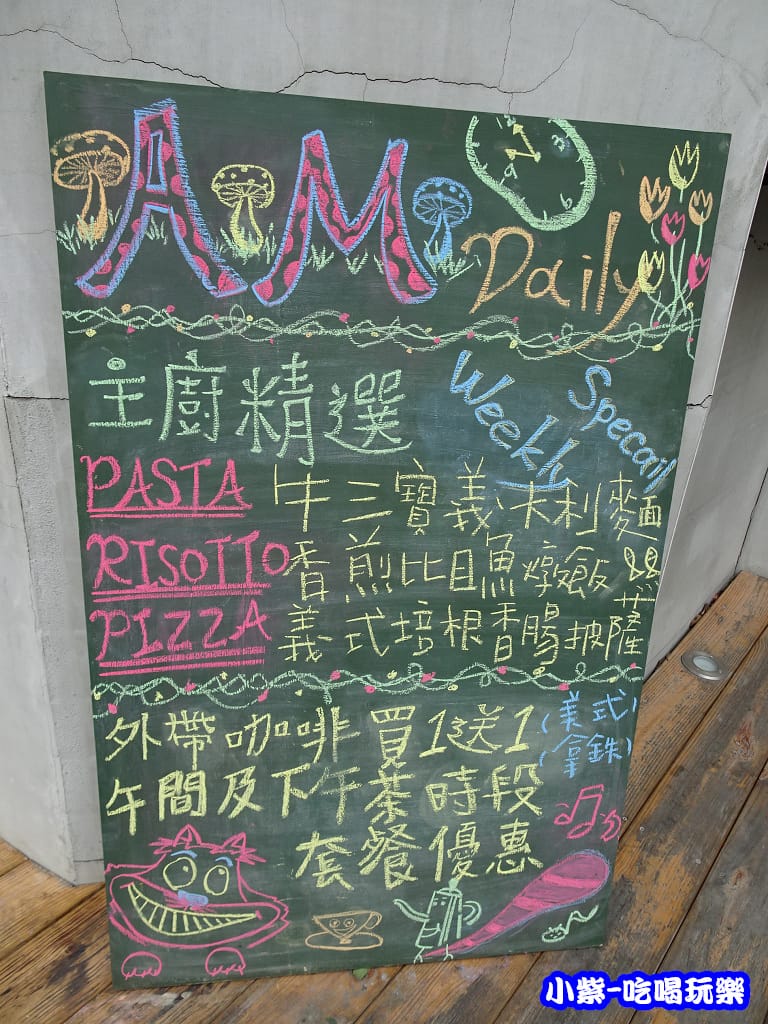 AM
Daily
主廚精選
Weekly
Specail
PASTA 牛三寶義大利麵
RISOTTO 香煎比目魚燉飯
PIZZA 義式培根香腸披薩
外帶咖啡買1送1 (美式
(拿鉄)
午間及下午茶時段
套餐優惠
小紫-吃喝玩樂